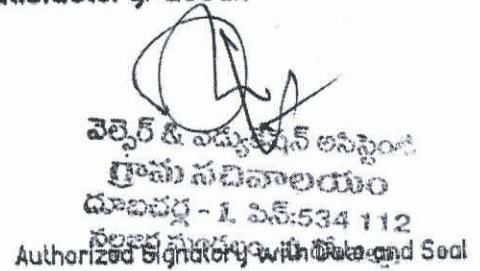 వెల్ఫేర్ & ఎడ్యుకేషన్ అసిస్టెంట్
గ్రామ సచివాలయం
దూబచర్ల - 1, పిన్:534 112
నల్లజర్ల మండలం,
Authorized Signatory with Date and Seal